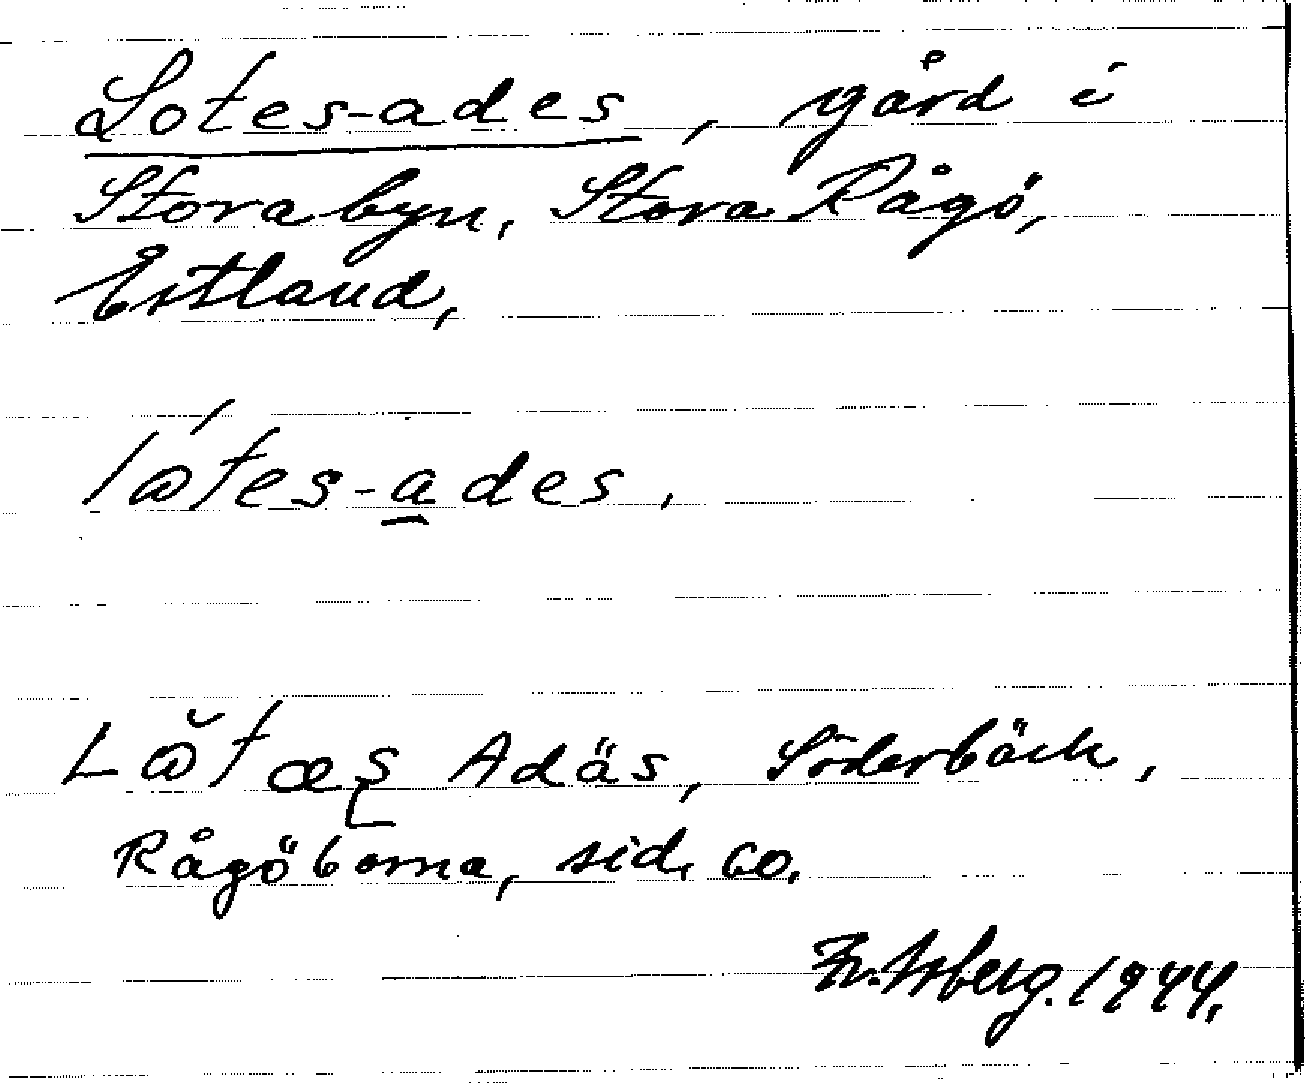 Lotes-ades, gård i
Storabyn, Stora Rågö,
Estland,
låtes-ades,
Låtæs Adäs, Söderbäck,
Rågöborna, sid. 60.
1944.